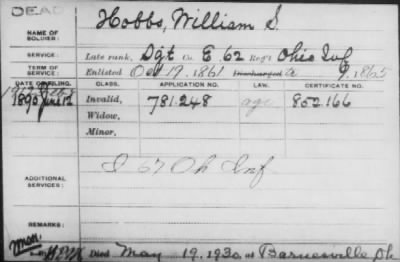 DEAD
NAME OF SOLDIER: Hobbs, William S.
SERVICE: Late rank, Sgt Co. E. 62 Reg't Ohio Inf
TERM OF SERVICE: Enlisted Oct 17, 1861 Discharged 1865
DATE OF FILING. CLASS. APPLICATION NO. LAW. CERTIFICATE NO.
1890 June 12 Invalid, 781.248 age 852.166
Widow,
Minor,
ADDITIONAL SERVICES: 67 Oh Inf
REMARKS:
Died May 19, 1930 at Barnesville Oh